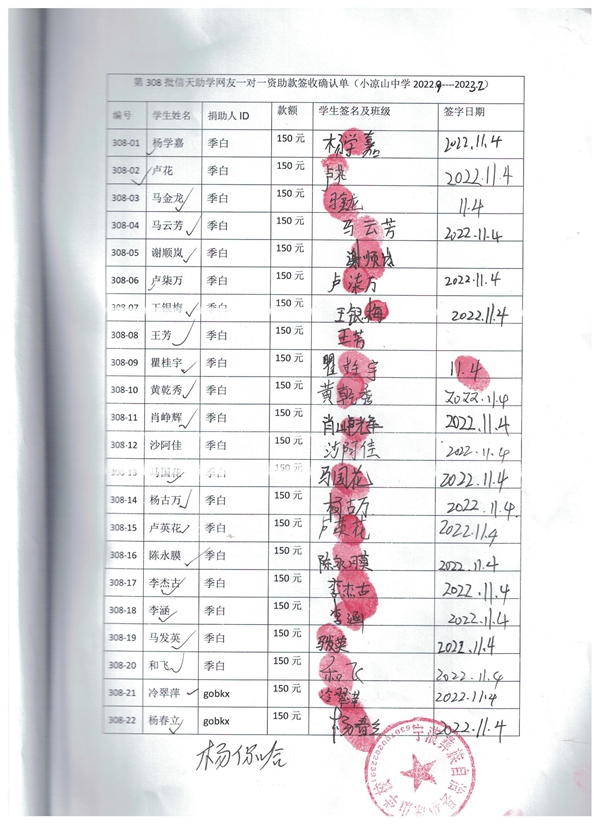 第 308 批信天助学网友一对一资助款签收确认单（小凉山中学 2022.9----2023.2）
编号 学生姓名 捐助人 ID 款额 学生签名及班级 签字日期
308-01 杨学嘉 季白 150 元 杨学嘉 2022.11.4
308-02 卢花 季白 150 元 卢花 2022.11.4
308-03 马金龙 季白 150 元 11.4
308-04 马云芳 季白 150 元 马云芳 2022.11.4
308-05 谢顺岚 季白 150 元 谢顺岚
308-06 卢柒万 季白 150 元 卢柒万 2022.11.4
308-07 王银梅 季白 150 元 王银梅 2022.11.4
308-08 王芳 季白 150 元 王芳
308-09 瞿桂宇 季白 150 元 瞿桂宇 11.4
308-10 黄乾秀 季白 150 元 黄乾秀 2022.11.4
308-11 肖峥辉 季白 150 元 肖峥辉 2022.11.4
308-12 沙阿佳 季白 150 元 沙阿佳 2022.11.4
308-13 马国花 季白 150 元 马国花 2022.11.4
308-14 杨古万 季白 150 元 杨古万 2022.11.4.
308-15 卢英花 季白 150 元 卢英花 2022.11.4
308-16 陈永膜 季白 150 元 陈永膜 2022.11.4
308-17 李杰古 季白 150 元 李杰古 2022.11.4
308-18 李涵 季白 150 元 李涵 2022.11.4
308-19 马发英 季白 150 元 马发英 2021.11.4
308-20 和飞 季白 150 元 和飞 2022.11.4
308-21 冷翠萍 gobkx 150 元 冷翠萍 2022.11.4
308-22 杨春立 gobkx 150 元 2022.11.4
宁蒗彝族自治